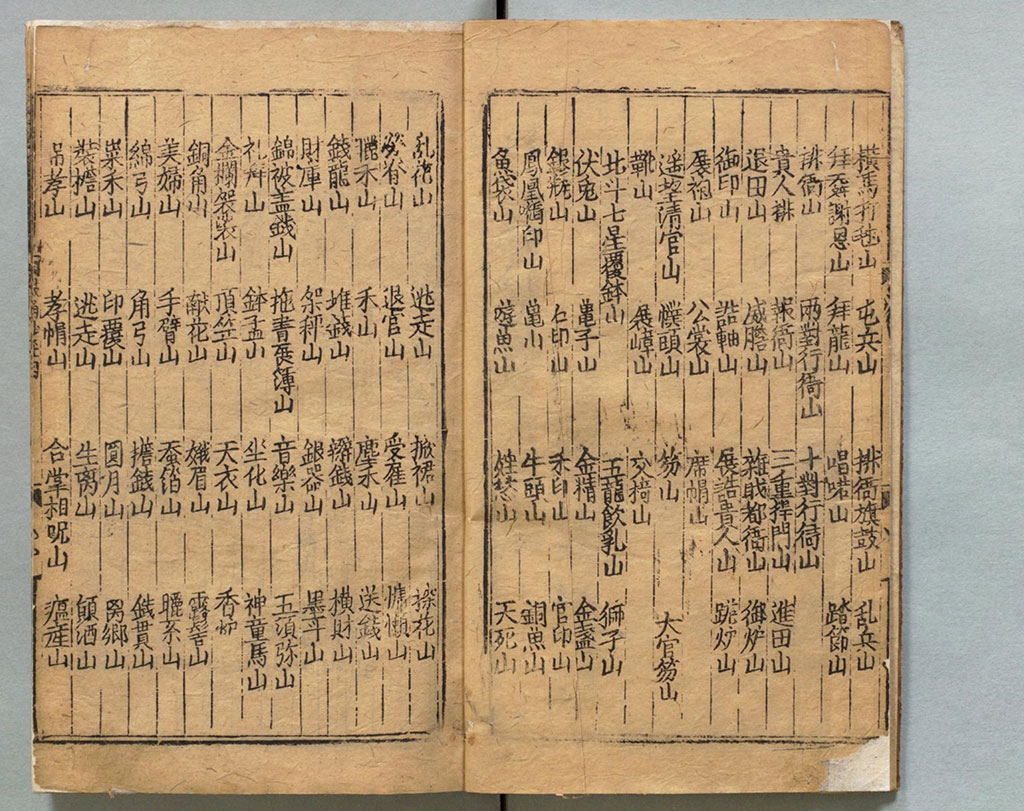 橫馬打毬山 屯兵山 排衙旗鼓山 乱兵山
拜舞謝恩山 拜龍山 唱喏山 踏節山
排衙山 兩對行衙山 十對行衙山
貴人排 報衙山 三重捍門山 進田山
退田山 威膽山 雜戝都衙山 御炉山
御印山 誥軸山 展誥貴人山 踪炉山
展袍山 公裳山 席帽山
遙望清官山 幞頭山 笏山 大官笏山
靴山 展幛山 交猗山
北斗七星覆鉢山 五龍飲乳山 獅子山
伏兎山 亀子山 金精山 金盞山
銀瓶山 石印山 禾印山 官印山
鳳凰啣印山 亀山 牛頭山 銅魚山
魚袋山 遊魚山 山 天死山
乱花山 逃走山 掀裙山 探花山
山 退官山 受雇山 慵懶山
曬禾山 禾山 塵禾山 送錢山
錢龍山 堆錢山 辮錢山 橫財山
財庫山 架秤山 銀瓶山 墨斗山
錦被盖錢山 拖青展薄山 音樂山 五須弥山
礼拜山 鉢盂山 坐化山 神童馬山
金襴袈裟山 頂笠山 天衣山 香炉
銅角山 献花山 娥眉山 露髻山
美婦山 手臂山 蚕箔山 曬糸山
綿弓山 角弓山 擔錢山 錢貫山
巣禾山 印覆山 圓月山 离鄉山
裝擔山 逃走山 生离山 顛酒山
吊孝山 孝帽山 合掌相呪山 瘟疫山